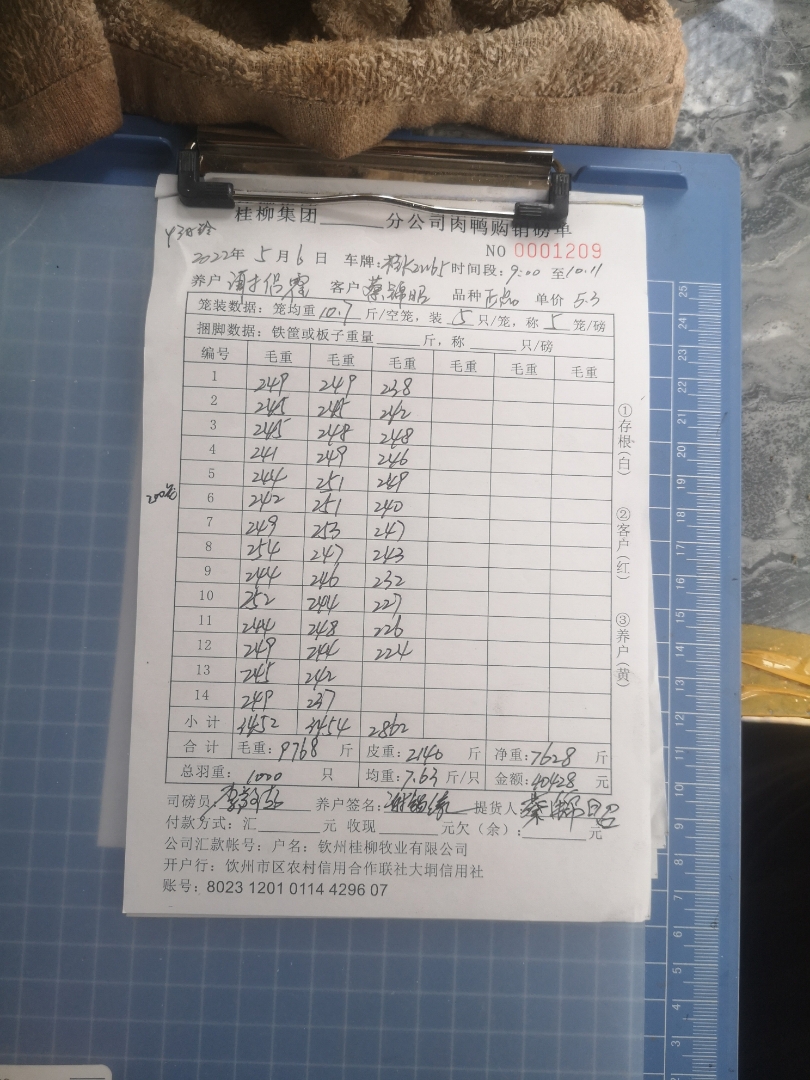 桂柳集团______分公司肉鸭购销磅单
NO 0001209
2022年 5月6日 车牌: 时间段:9:00至10:11
养户 客户 蔡锦昭 品种 正品 单价 5.3
笼装数据:笼均重10.7斤/空笼,装5只/笼,称5笼/磅
捆脚数据:铁筐或板子重量______斤,称______只/磅
编号 毛重 毛重 毛重 毛重 毛重 毛重
1 249 249 238
2 245 245 242
3 245 248 248
4 241 249 246
5 244 251 249
6 242 251 240
7 249 253 247
8 254 247 243
9 244 246 232
10 252 244 227
11 244 248 226
12 249 244 224
13 245 242
14 249 237
小计 3452 3454 2862
合计 毛重:9768斤 皮重:2140斤 净重:7628斤
总羽重:1000只 均重:7.63斤/只 金额:40428元
司磅员: 养户签名: 提货人 蔡锦昭
付款方式:汇______元 收现______元欠(余):______元
公司汇款帐号:户名:钦州桂柳牧业有限公司
开户行:钦州市区农村信用合作联社大垌信用社
账号:8023 1201 0114 4296 07
①存根(白) ②客户(红) ③养户(黄)
25
24
23
22
21
20
19
18
17
16
15
14
13
12
11
10
9
8
7
6
5
4
3